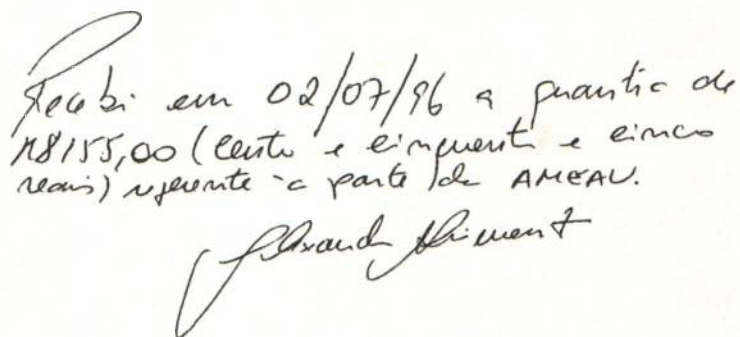 Recebi em 02/07/96 a quantia de
R$155,00 (cento e cinquenta e cinco
reais) referente a parte da AMEAV.